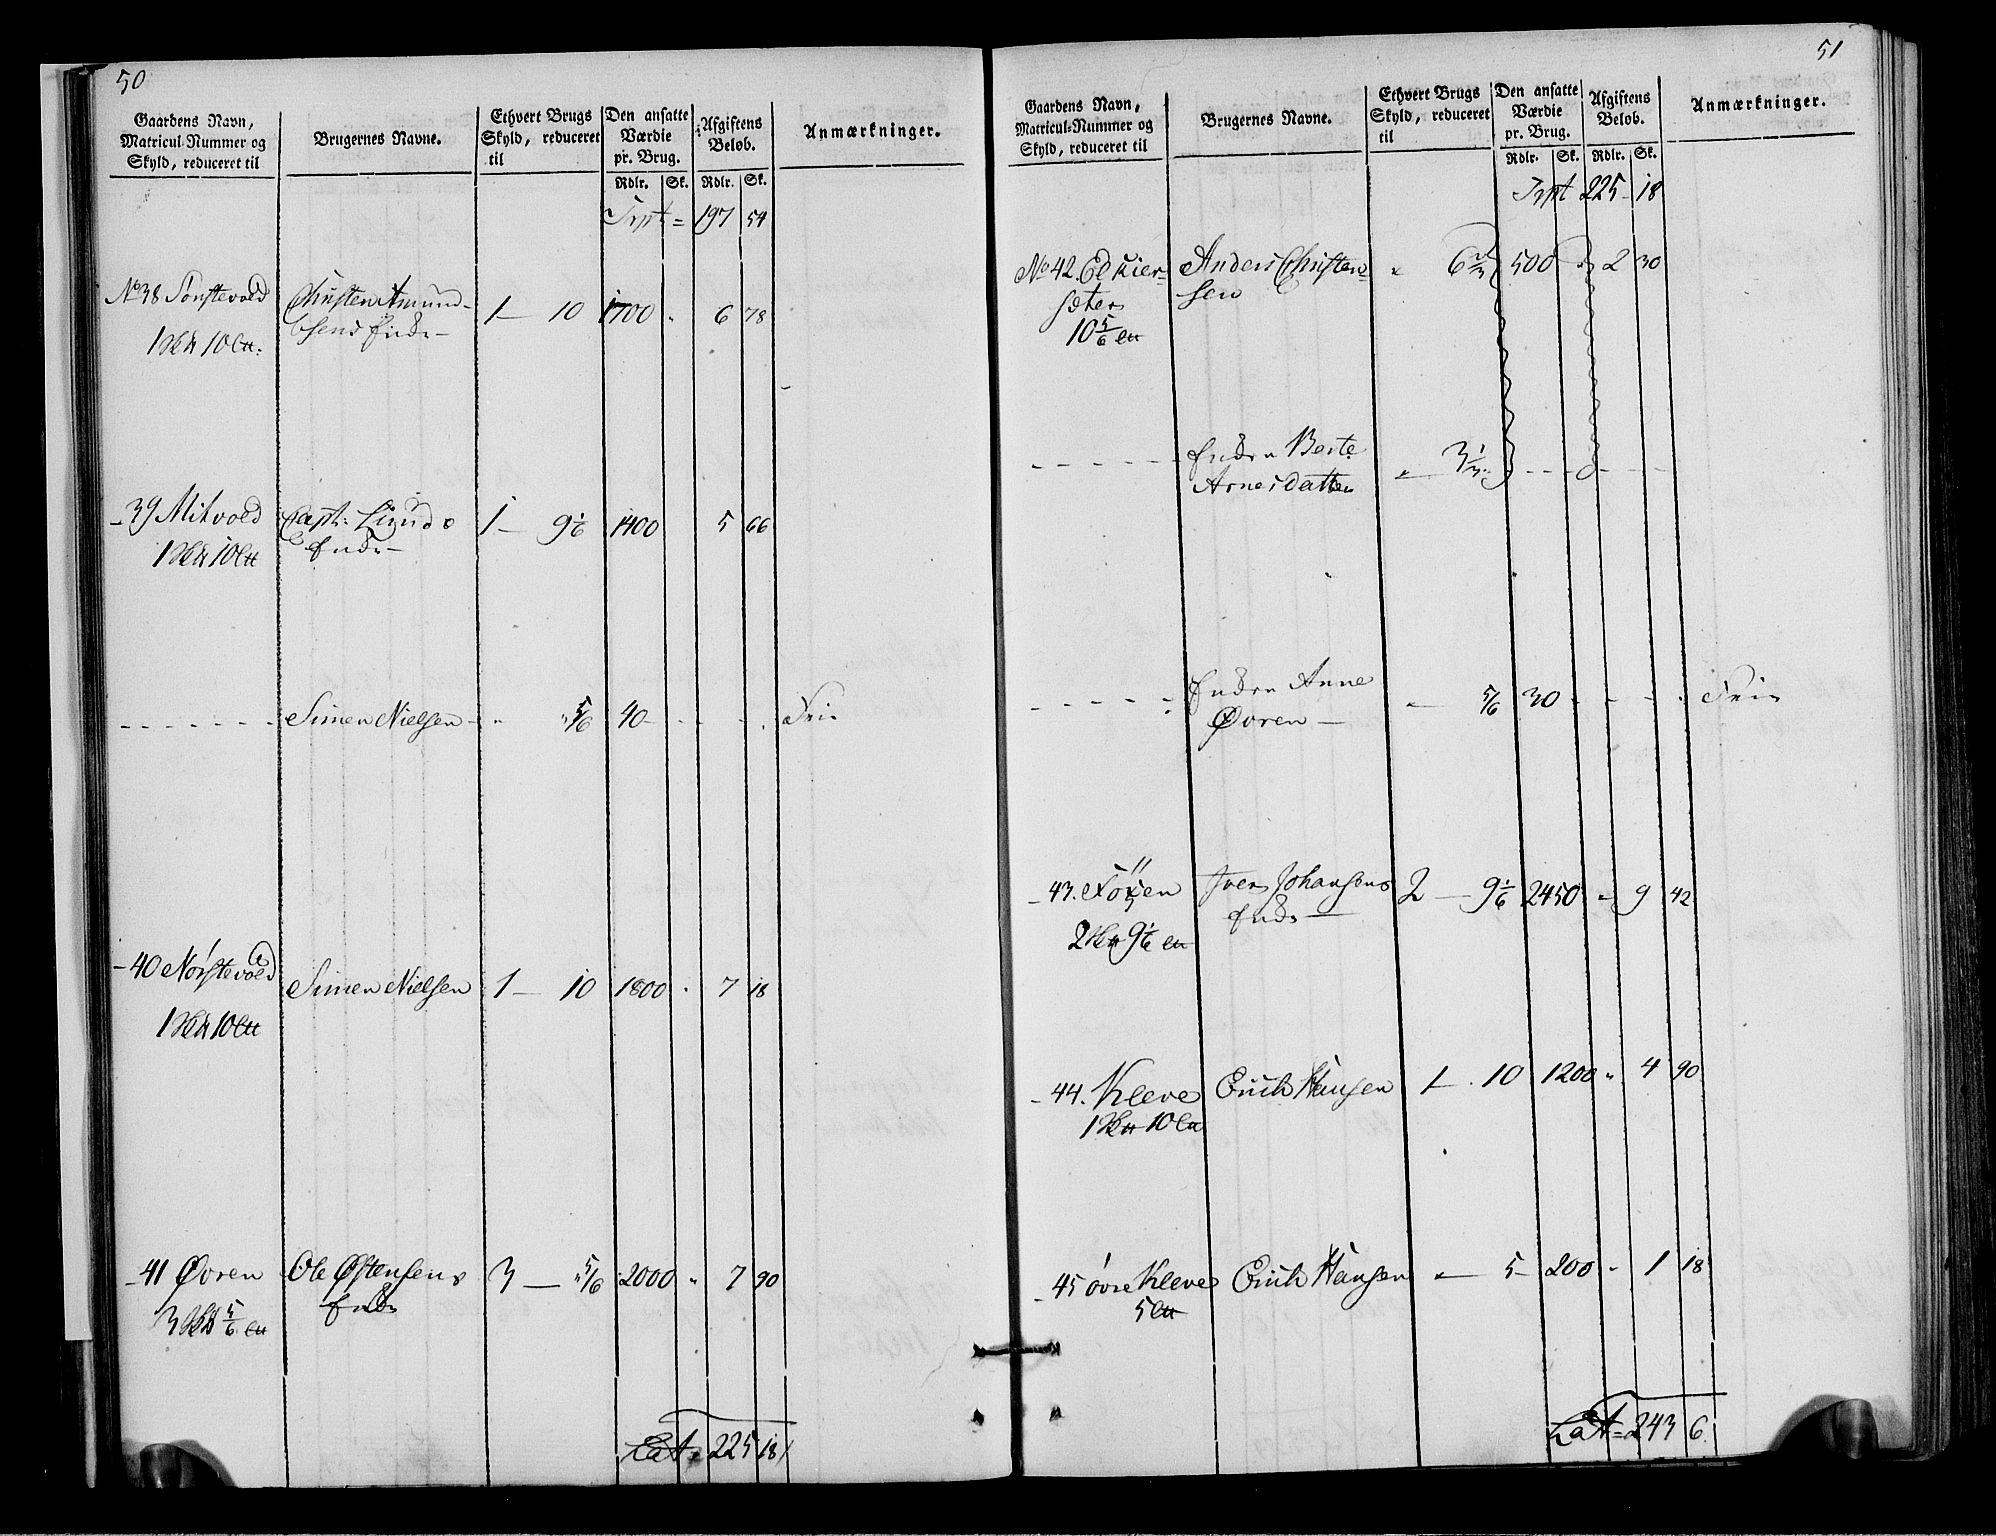 50
Gaardens Navn,
Matricul-Nummer og
Skyld, reduceret til
Brugernes Navne.
Ethvert Brugs
Skyld, reduceret
til
Den ansatte
Værdie
pr. Brug.
Afgiftens
Beløb.
Anmærkninger.
Rdlr. Sk. Rdlr. Sk.
Trpt = 197 54
No 38 Sønstevold Christen Amund- 1 — 10 1700 " 6 78
sens Enke —
1 10
39 Mitvold Capt: Lunds 1 — 9 1/6 1400 5 66
Enke —
1 10
Simen Nielsen - " " 5/6 40 - Frie
40 Nørstevold Simen Nielsen 1 — 10 1800 " 7 18
1 10
41 Øvren Ole Østensens 3 — " 5/6 2000 " 7 90
Enke
3 5/6
Lat = 225 18
51
Gaardens Navn,
Matricul-Nummer og
Skyld, reduceret til
Brugernes Navne.
Ethvert Brugs
Skyld, reduceret
til
Den ansatte
Værdie
pr. Brug.
Afgiftens
Beløb.
Anmærkninger.
Rdlr. Sk. Rdlr. Sk.
Trpt 225 - 18
No 42. Anders Christen- " 6 2/3 500 " 2 30
sæter sen
10 5/6
Enken Berte " 3 1/3
Arnesdatter
Enken Anne — 5/6 30 - Frie
Øvren —
43. Iver Johansens 2 — 9 1/6 2450 " 9 42
Enke —
2 9 1/6
44. Kleve Erich Hansen 1 — 10 1200 " 4 90
1 10
45 øvre Kleve Erich Hansen " — 5 — 200 " 1 18
5
Lat = 243 6